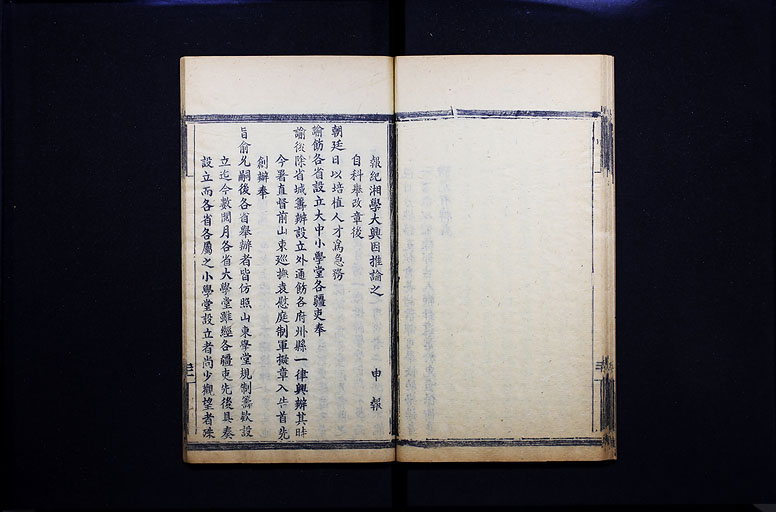 報紀湘學大興因推論之 申報
自科舉改章後
朝廷日以培植人才爲急務
諭飭各省設立大中小學堂各疆吏奉
諭後除省城籌辦設立外通飭各府州縣一律興辦其時
今署直督前山東巡撫袁慰庭制軍擬章入告首先
創辦奉
旨俞允嗣後各省舉辦者皆仿照山東學堂規制籌欵設
立迄今數閱月各省大學堂雖經各疆吏先後具奏
設立而各省各屬之小學堂設立者尚少觀望者殊